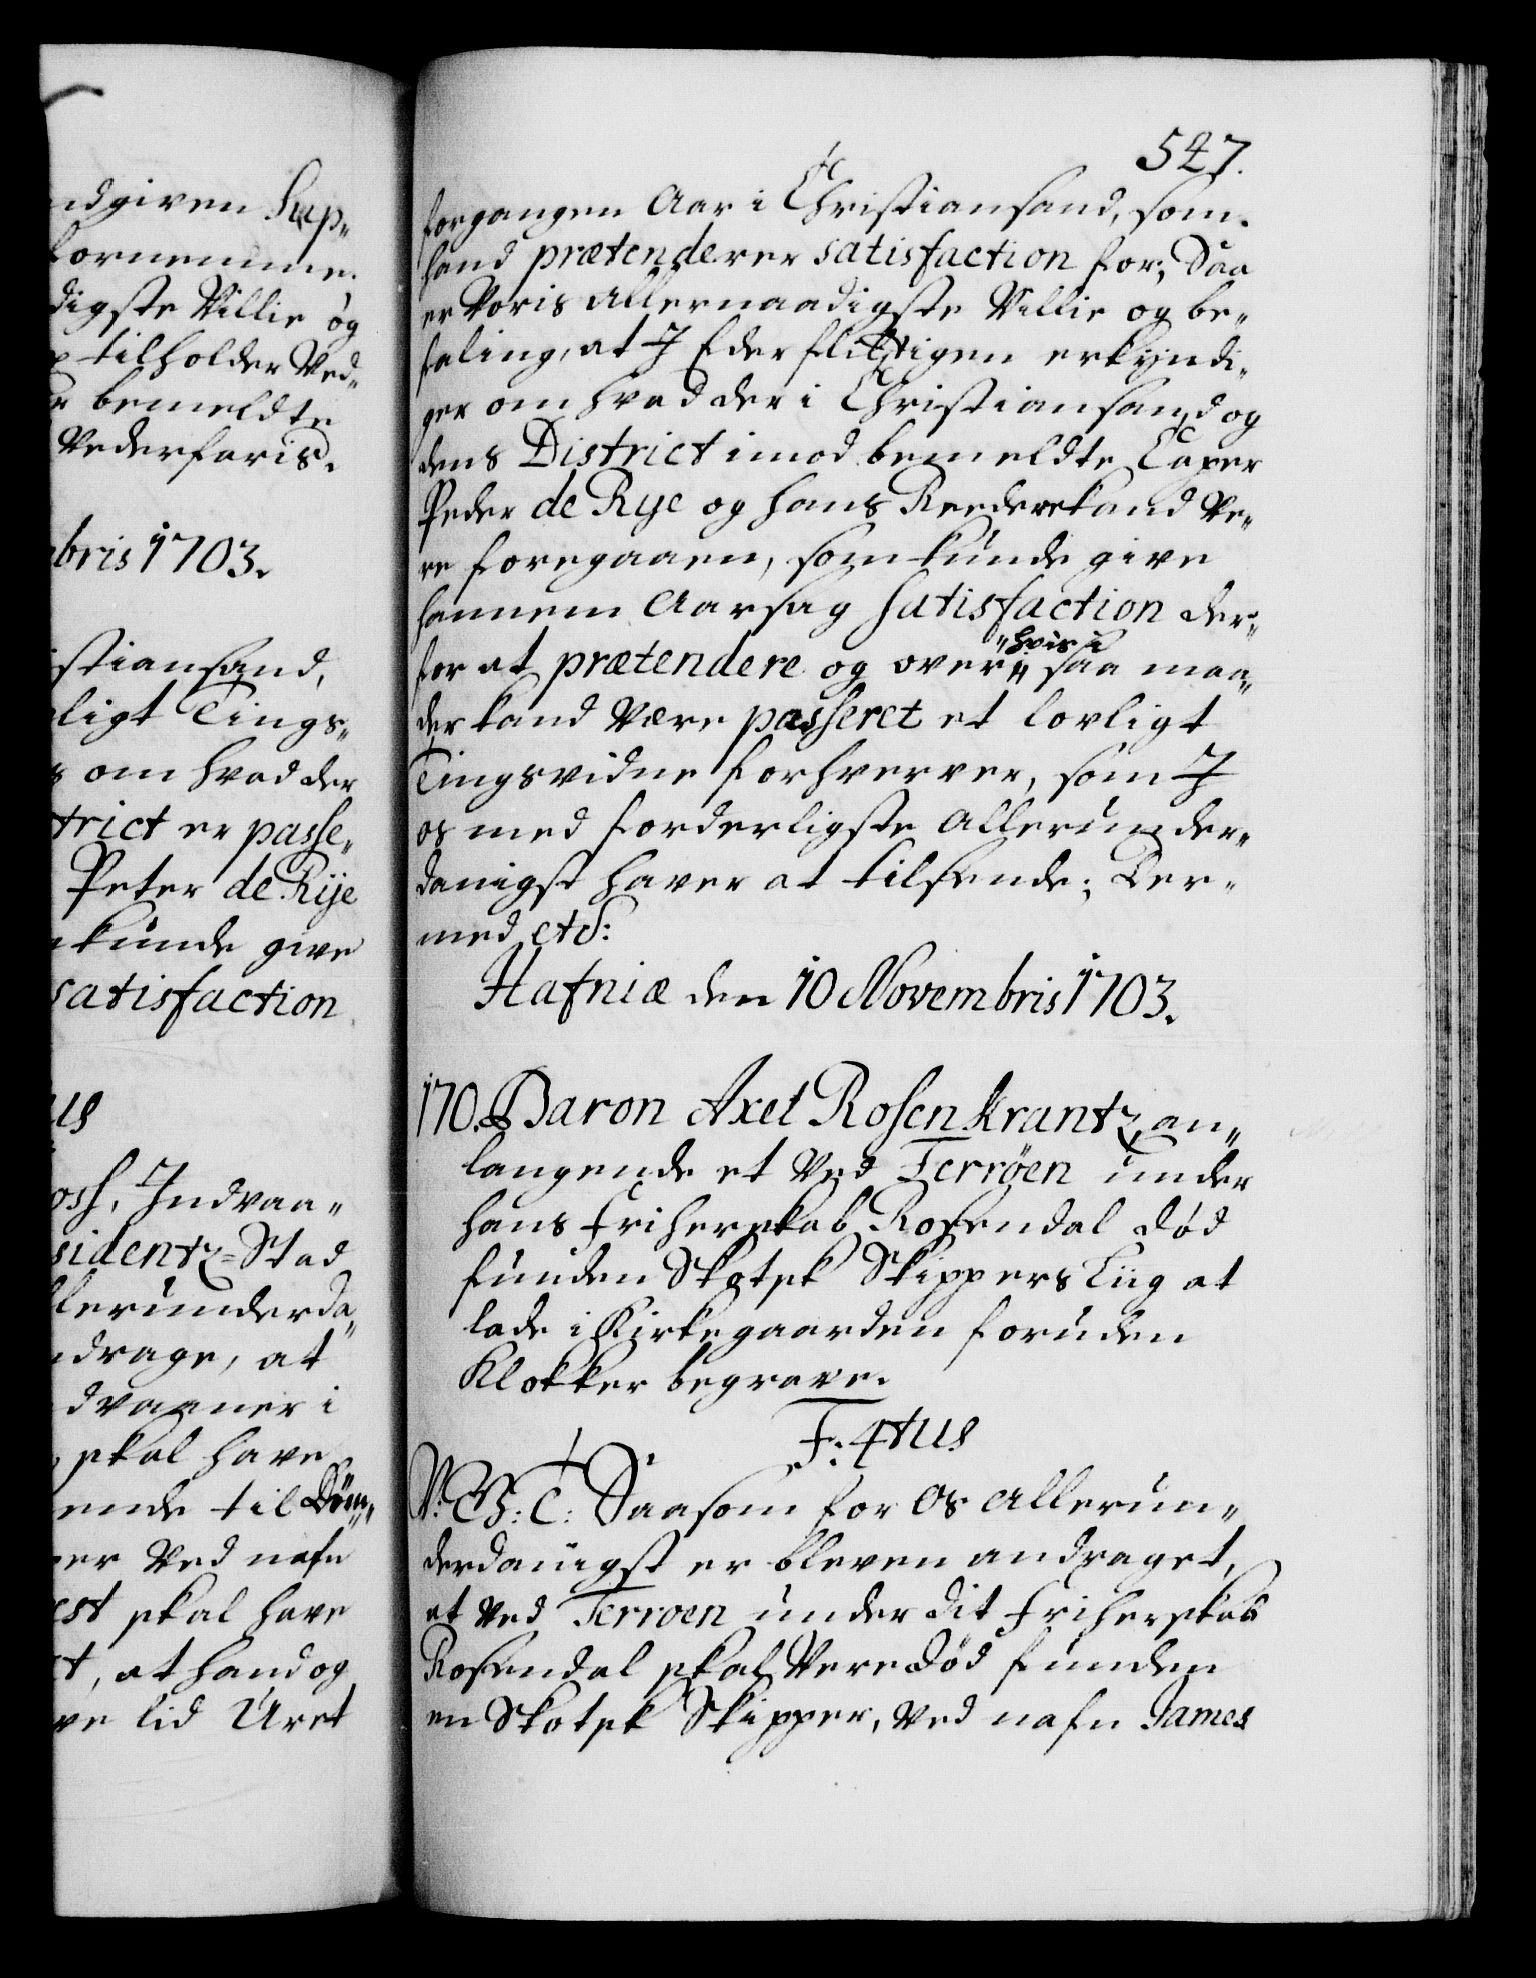 ndgiven Sup„
fornemme.
digste Villie og
tilholder Ved„
bemeldte
Vederfaris.
bris 1703.
stiansand,
ligt Tings„
om hvad der
trict er passe„
Peter de Rije
kunde give
satisfaction
us
oss, Indvaa„
sidentz=Stad
llerunderda„
ndrage, at
dvaaner i
skal have
ende til Döm„
er Ved nafn
est skal have
t, at hand og
ve lid Uret
547.
forgangen Aar i Christiansand, som
hand prætenderer satisfaction for; Saa
er Voris Allernaadigste Villie og be„
faling, at I Eder flittigen erkyndi„
ger om hvad der i Christiansand og
dens District imod bemeldte Caper
Peder de Rye og hans Reedere kand Ve„
re foregaaen, som kunde give
hannem Aarsag Satisfaction der„
for at prætendere og over „hvis i saa maa„
der kand Være passeret et lovligt
Tingsvidne forhverver, som I
os med forderligste Allerunder„
danigst haver at tilsende; Der„
med etc:
Hafniæ den 10 Novembris 1703.
170. Baron Axel Rosenkrantz, an„
langende et Ved Terröen under
hans friherskab Rosendal död
funden Skotsk Skippers Liig at
lade i Kirkegaarden foruden
Klokker begrave.
F: 4tus
V. G: T: Saasom for Os Allerun„
derdanigst er bleven andraget,
at Ved Terroen under dit friherskab
Rosendal skal Vere död funden
en Skotsk Skipper, Ved nafn James